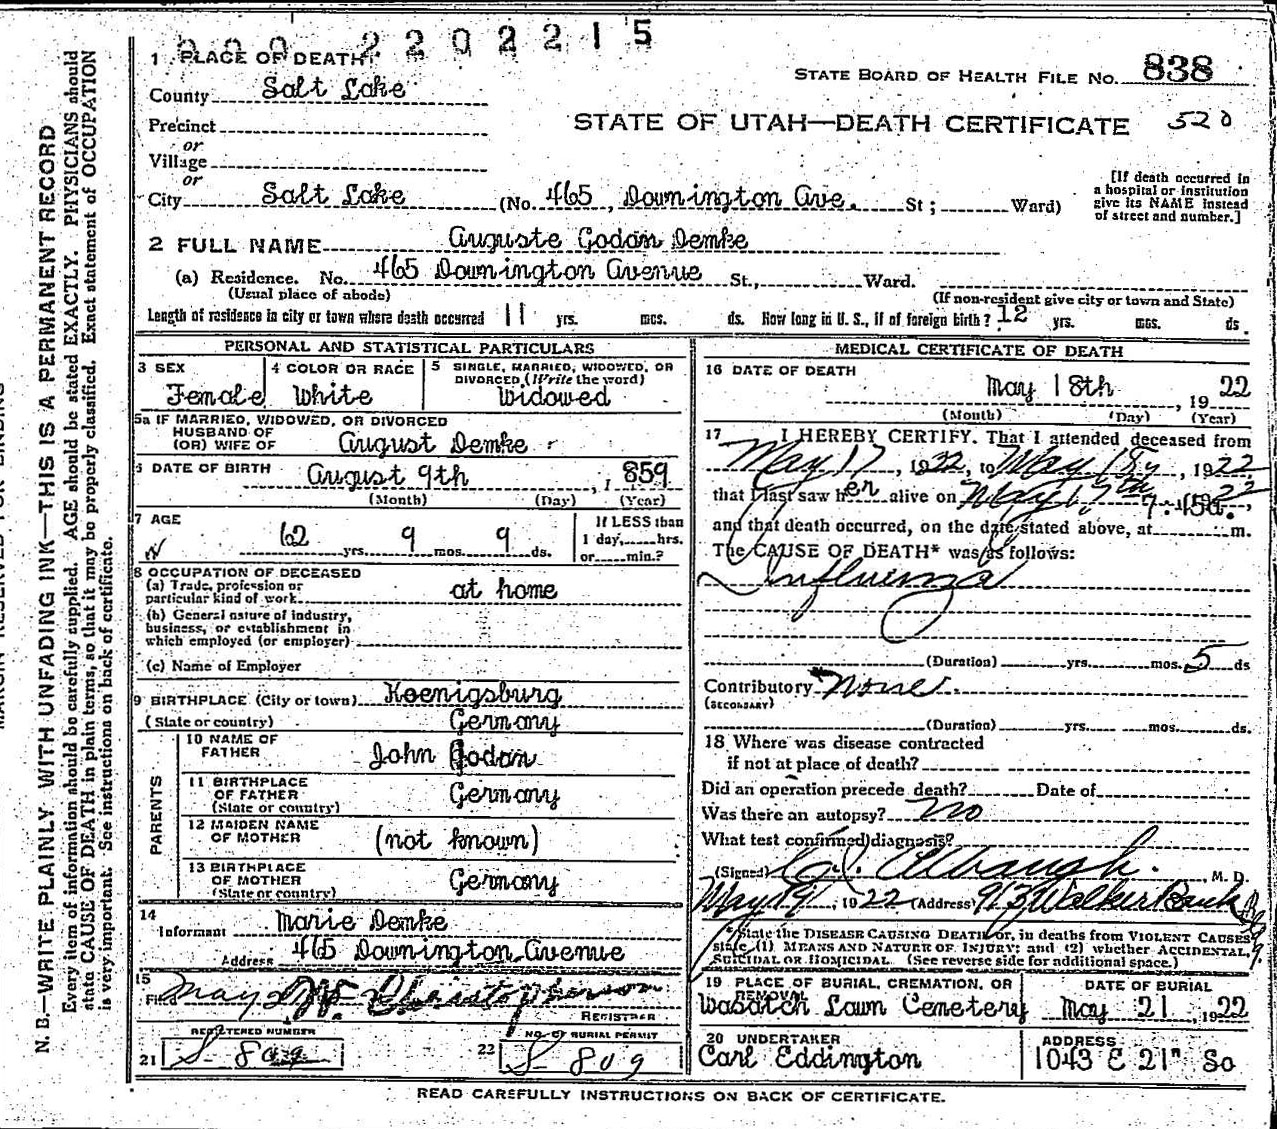 2202215
1 PLACE OF DEATH
STATE BOARD OF HEALTH FILE NO. 838
County Salt Lake
Precinct
or
Village
or
STATE OF UTAH—DEATH CERTIFICATE 520
City Salt Lake (No. 465, Downington Ave. St; Ward)
[If death occurred in
a hospital or institution
give its NAME instead
of street and number.]
2 FULL NAME Auguste Godan Demke
(a) Residence. No. 465 Downington Avenue St., Ward.
(Usual place of abode) (If non-resident give city or town and State)
Length of residence in city or town where death occurred 11 yrs. mos. ds. How long in U. S., if of foreign birth? 12 yrs. mos. ds.
PERSONAL AND STATISTICAL PARTICULARS
3 SEX
Female
4 COLOR OR RACE
White
5 SINGLE, MARRIED, WIDOWED, OR
DIVORCED (Write the word)
Widowed
5a IF MARRIED, WIDOWED, OR DIVORCED
HUSBAND OF
(OR) WIFE OF August Demke
6 DATE OF BIRTH August 9th, 1859
(Month) (Day) (Year)
7 AGE
62 yrs. 9 mos. 9 ds.
If LESS than
1 day, hrs.
or min.?
8 OCCUPATION OF DECEASED
(a) Trade, profession or
particular kind of work at home
(b) General nature of industry,
business, or establishment in
which employed (or employer)
(c) Name of Employer
9 BIRTHPLACE (City or town) Koenigsburg
(State or country) Germany
PARENTS
10 NAME OF
FATHER John Godan
11 BIRTHPLACE
OF FATHER
(State or country) Germany
12 MAIDEN NAME
OF MOTHER (not known)
13 BIRTHPLACE
OF MOTHER
(State or country) Germany
14
Informant Marie Demke
Address 465 Downington Avenue
15
May W. Christopherson
REGISTRAR
REGISTERED NUMBER
21 S-809
NO. OF BURIAL PERMIT
22 S-809
MEDICAL CERTIFICATE OF DEATH
16 DATE OF DEATH
May 18th, 1922
(Month) (Day) (Year)
17 I HEREBY CERTIFY, That I attended deceased from
May 17, 1922, to May 18, 1922
that I last saw her alive on May 17th 22,
and that death occurred, on the date stated above, at 7:45a. m.
The CAUSE OF DEATH* was as follows:
Influenza
(Duration) yrs. mos. 5 ds
Contributory None.
(SECONDARY)
(Duration) yrs. mos. ds.
18 Where was disease contracted
if not at place of death?
Did an operation precede death? Date of
Was there an autopsy? No
What test confirmed diagnosis?
(Signed) Albaugh. M. D.
May 19, 1922 (Address) 913 Walker Bank
*State the DISEASE CAUSING DEATH or, in deaths from VIOLENT CAUSES
state (1) MEANS AND NATURE OF INJURY; and (2) whether ACCIDENTAL,
SUICIDAL OR HOMICIDAL. (See reverse side for additional space.)
19 PLACE OF BURIAL, CREMATION, OR
REMOVAL
Wasatch Lawn Cemetery
DATE OF BURIAL
May 21, 1922
20 UNDERTAKER
Carl Eddington
ADDRESS
1043 E 21" So
READ CAREFULLY INSTRUCTIONS ON BACK OF CERTIFICATE.
MARGIN RESERVED FOR BINDING
N. B.—WRITE PLAINLY, WITH UNFADING INK—THIS IS A PERMANENT RECORD
Every item of information should be carefully supplied. AGE should be stated EXACTLY. PHYSICIANS should
state CAUSE OF DEATH in plain terms, so that it may be properly classified. Exact statement of OCCUPATION
is very important. See instructions on back of certificate.